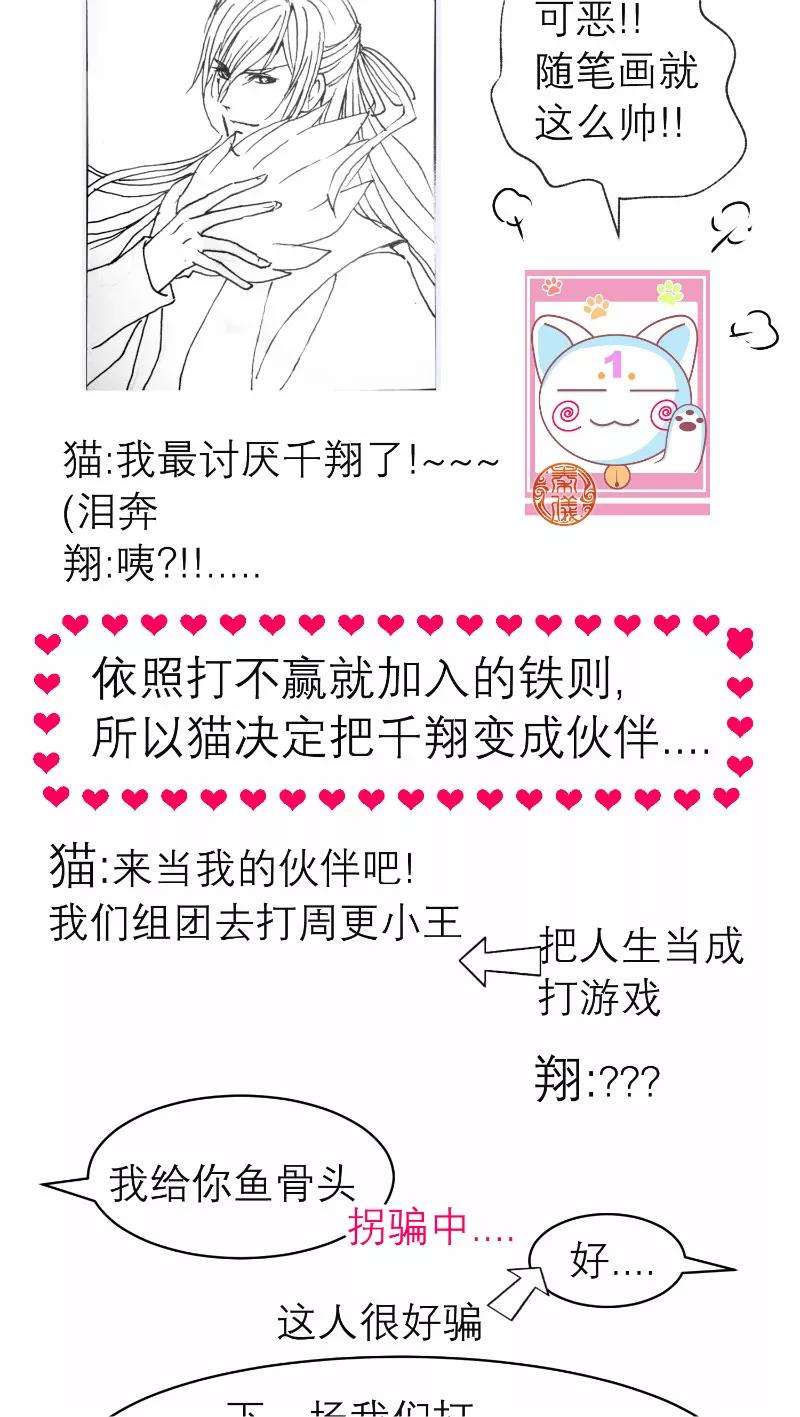 可恶!!
随笔画就
这么帅!!
1
秦儀
猫:我最讨厌千翔了!~~~
(泪奔
翔:咦?!!.....
依照打不赢就加入的铁则,
所以猫决定把千翔变成伙伴....
猫:来当我的伙伴吧!
我们组团去打周更小王
把人生当成
打游戏
翔:???
我给你鱼骨头
拐骗中....
好....
这人很好骗